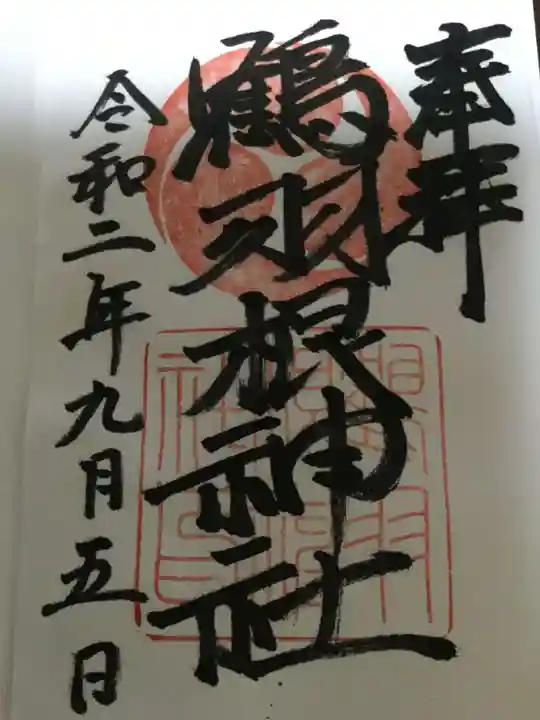 奉拝
鶴羽根神社
令和二年九月五日